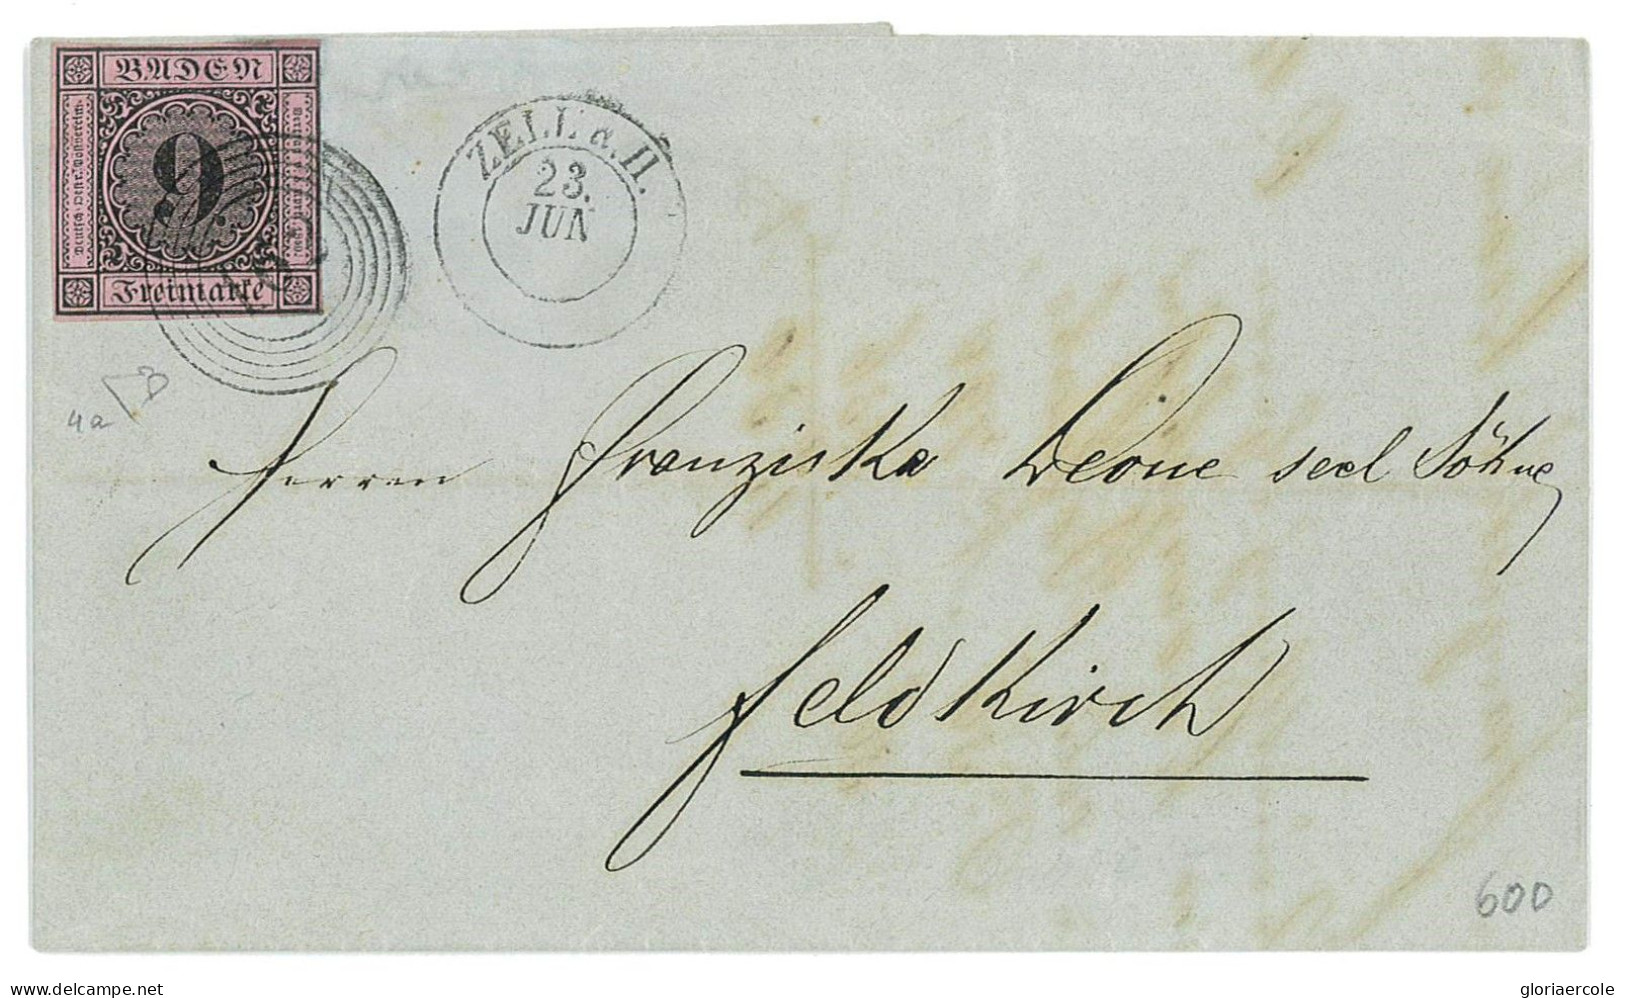 BADEN
Deutsch-Oestr. Postverein
9.
Freimarke
ZELL a. H.
23.
JUN
4a
Herren Franziska Leone seel Söhne
Feldkirch
600
delcampe.net
gloriaercole